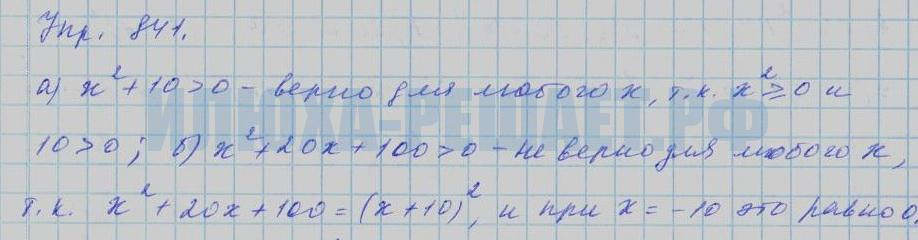 Упр. 841.
а) x² + 10 > 0 - верно для любого x, т.к. x² ≥ 0 и
ИПОХА-РЕШАЕТ.РФ
10 > 0; б) x² + 20x + 100 > 0 - не верно для любого x,
т.к. x² + 20x + 100 = (x + 10)², и при x = -10 это равно 0.